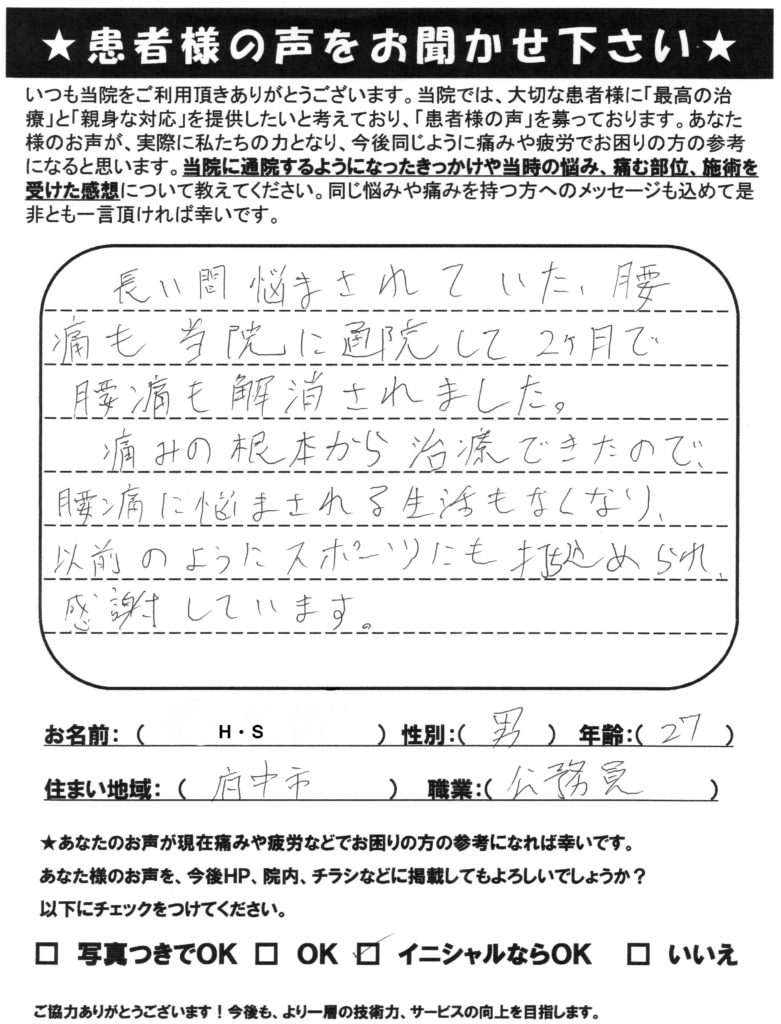 ★患者様の声をお聞かせ下さい★
いつも当院をご利用頂きありがとうございます。当院では、大切な患者様に「最高の治
療」と「親身な対応」を提供したいと考えており、「患者様の声」を募っております。あなた
様のお声が、実際に私たちの力となり、今後同じように痛みや疲労でお困りの方の参考
になると思います。当院に通院するようになったきっかけや当時の悩み、痛む部位、施術を
受けた感想について教えてください。同じ悩みや痛みを持つ方へのメッセージも込めて是
非とも一言頂ければ幸いです。
長い間悩まされていた、腰
痛も当院に通院して2ヶ月で
腰痛も解消されました。
痛みの根本から治療できたので、
腰痛に悩まされる生活もなくなり、
以前のようにスポーツにも打込められ、
感謝しています。
お名前：（ H・S ） 性別：（ 男 ） 年齢：（ 27 ）
住まい地域：（ 府中市 ） 職業：（ 公務員 ）
★あなたのお声が現在痛みや疲労などでお困りの方の参考になれば幸いです。
あなた様のお声を、今後HP、院内、チラシなどに掲載してもよろしいでしょうか？
以下にチェックをつけてください。
□ 写真つきでOK □ OK ☑ イニシャルならOK □ いいえ
ご協力ありがとうございます！今後も、より一層の技術力、サービスの向上を目指します。